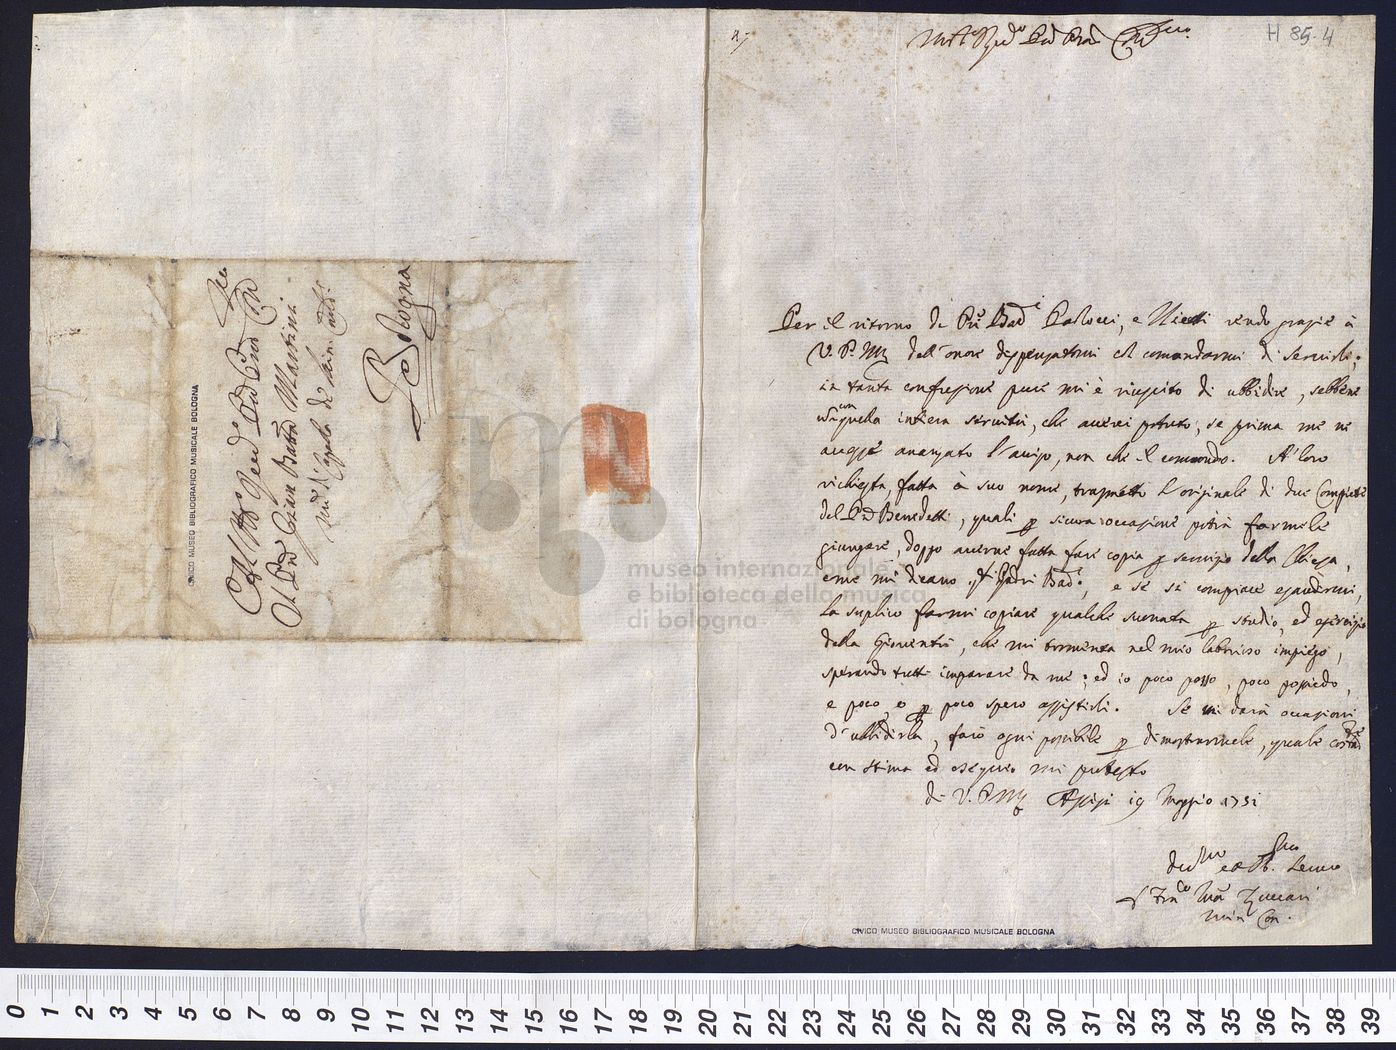 Al Mto Revdo Pad Pron Col
Il Pad Giam Batta Martini
Mro di Cappella de Min: Conli
Bologna
CIVICO MUSEO BIBLIOGRAFICO MUSICALE BOLOGNA
H 85-4
Mto Revdo Pad Pron Colmo
Per il ritorno de PPri Badi Paolucci, e rendo grazie à
V. P. M. dell'onore dispensatomi col comandarmi di servirli;
in tanta confusione pure mi è riuscito di ubbidire, sebbene
con quella intiera servitù, che averei potuto, se prima me ne
avesse avanzato l'aviso, non che il comando. A loro
richiesta, fatta à suo nome, trasmetto l'originale di due Compiete
del Pd Benedetti, quali p sicura occasione potrà farmele
giungere, doppo averne fatta fare copia p servizio della Chiesa,
come mi dicano i Padri Badi; e se si compiace esaudirmi,
la suplico farmi copiare qualche suonata p studio, ed esercizio
della Gioventù, che mi tormenta nel mio laborioso impiego,
sperando tutti imparare da me; ed io poco posso, poco possiedo,
e poco, o p poco spero assisterli. Se mi darà occasioni
d'ubbidirla, farò ogni possibile p dimostrarmele, quale
con stima ed ossequio mi protesto
di V. P. M. Assisi 19 Maggio 1751
Devmo ed Obb. Servo
F Franco Ma Zuccari
Min Con.
CIVICO MUSEO BIBLIOGRAFICO MUSICALE BOLOGNA
museo internazionale
e biblioteca della musica
di bologna
0 1 2 3 4 5 6 7 8 9 10 11 12 13 14 15 16 17 18 19 20 21 22 23 24 25 26 27 28 29 30 31 32 33 34 35 36 37 38 39